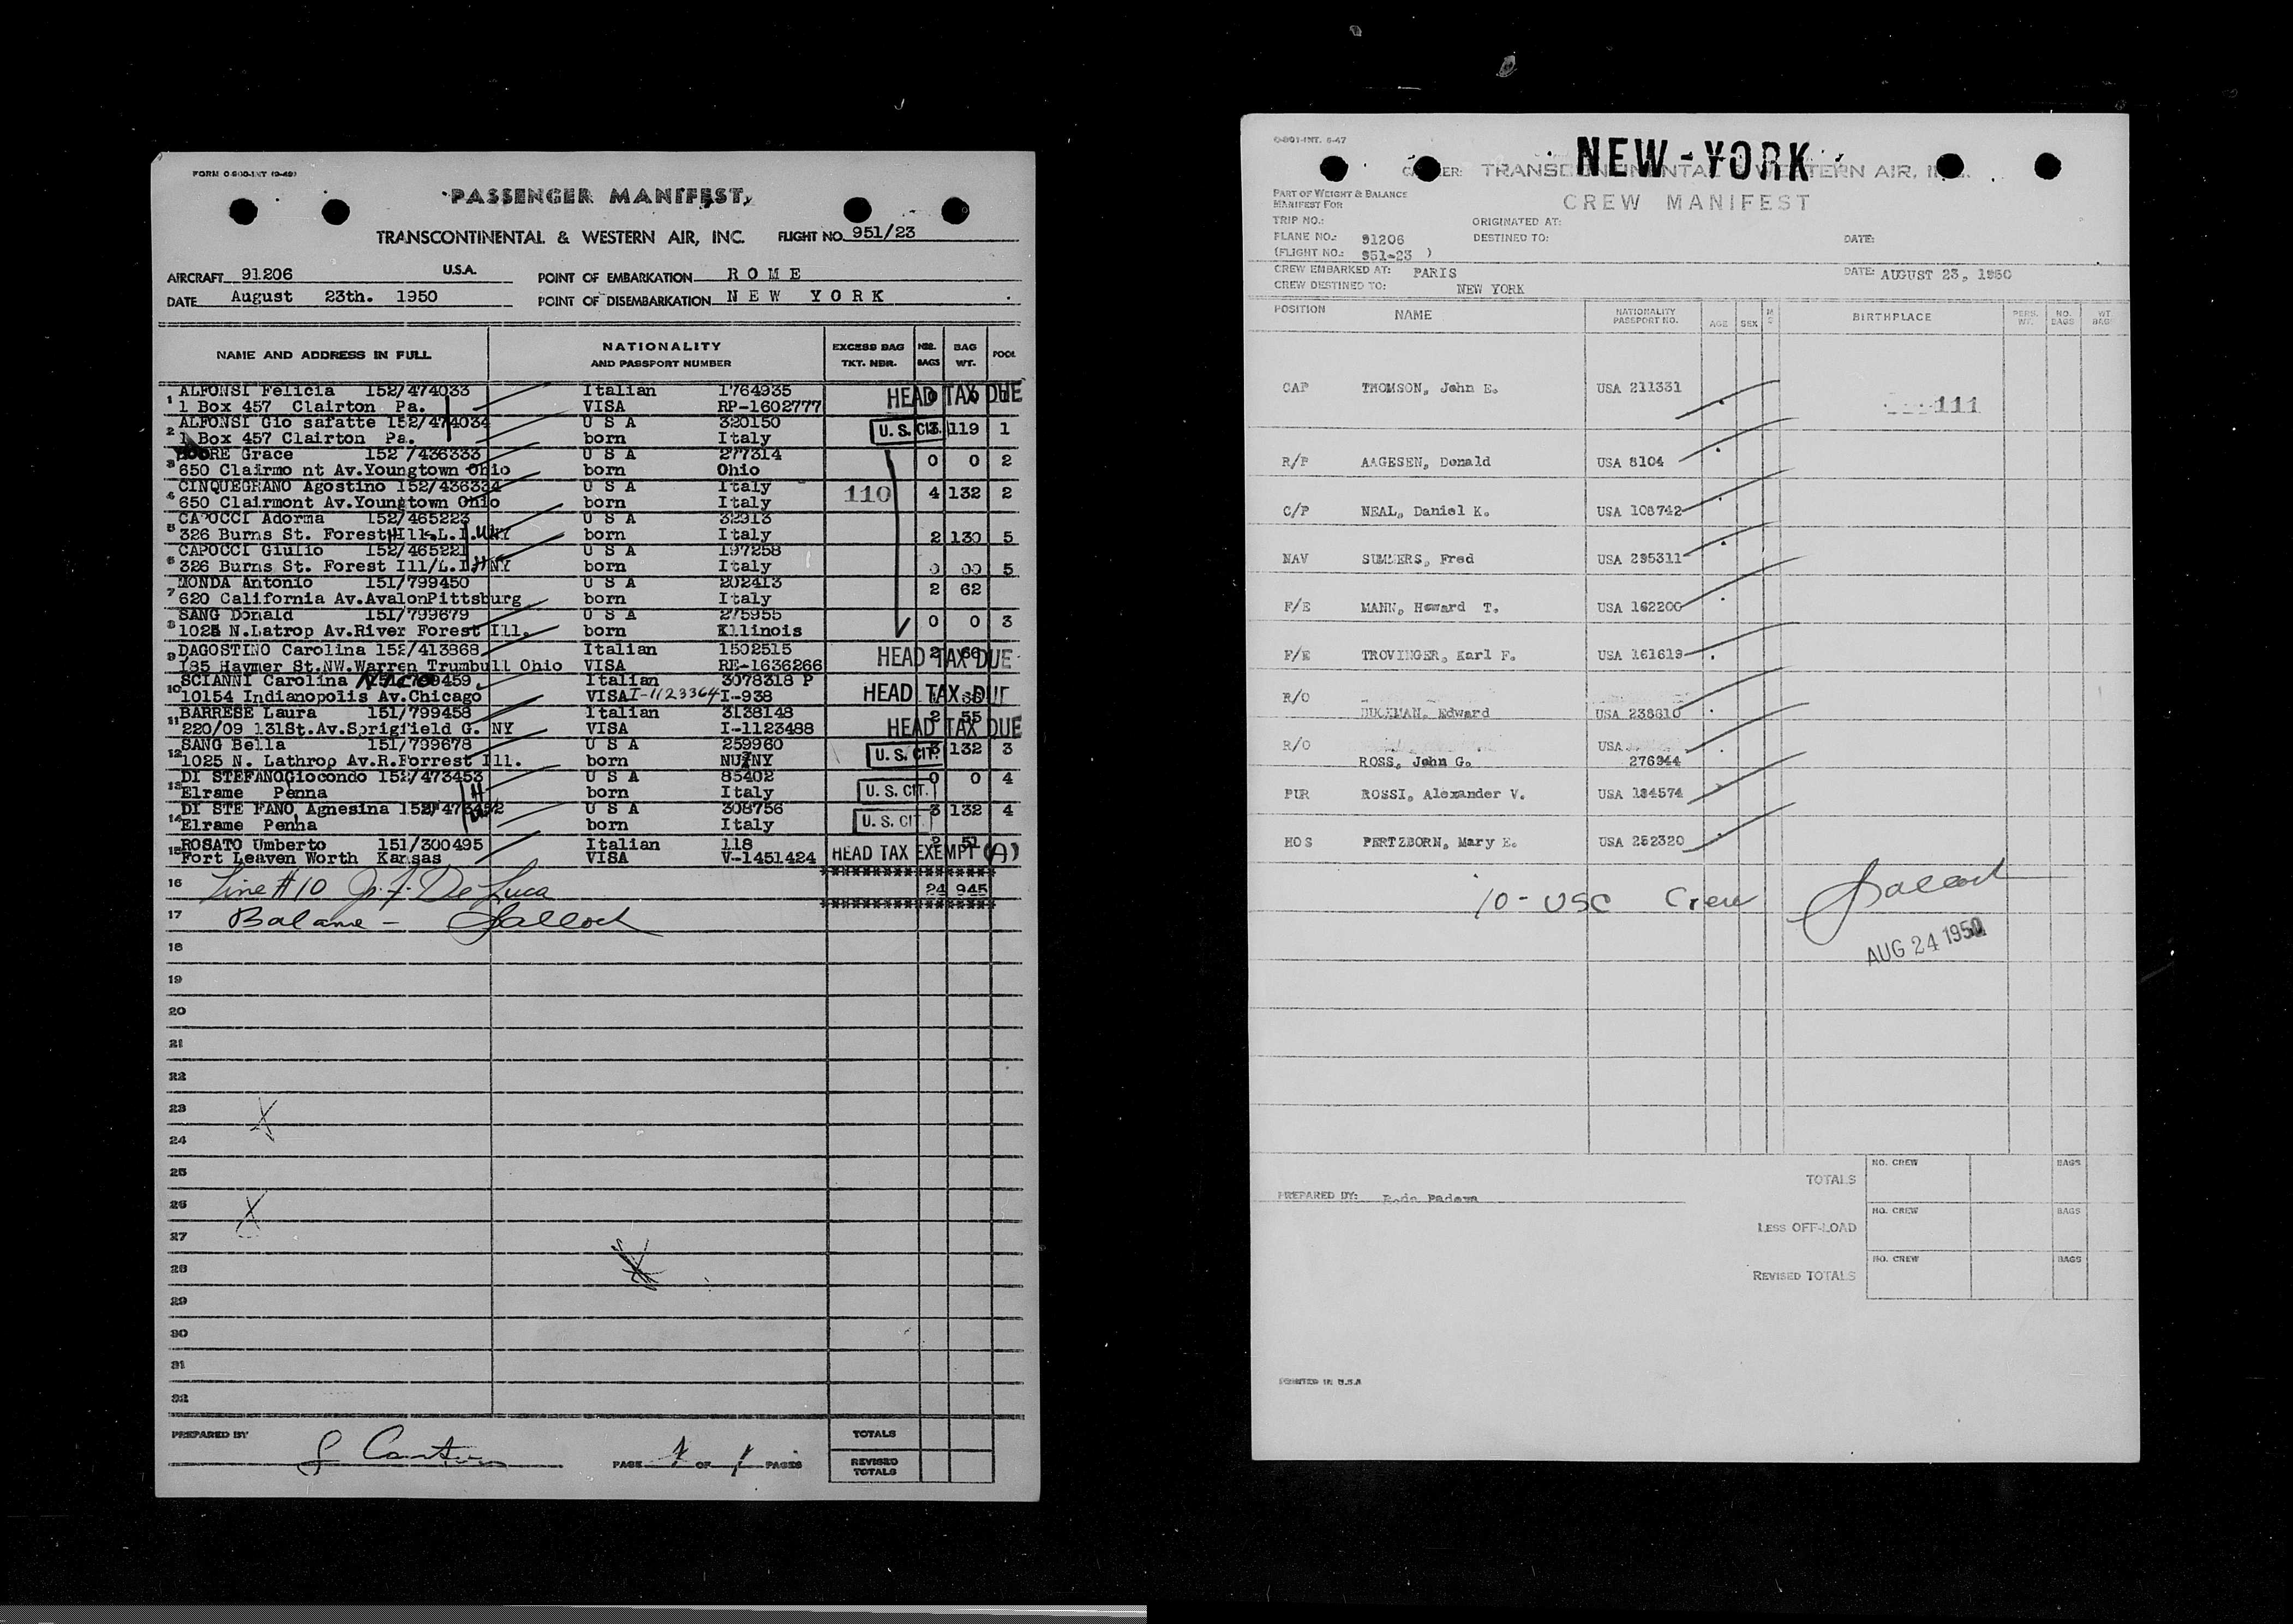 FORM O-900-INT (9-49)
PASSENGER MANIFEST
TRANSCONTINENTAL & WESTERN AIR, INC. FLIGHT NO. 951/23
AIRCRAFT 91206 U.S.A. POINT OF EMBARKATION R O M E
DATE August 23th. 1950 POINT OF DISEMBARKATION N E W Y O R K
NAME AND ADDRESS IN FULL NATIONALITY AND PASSPORT NUMBER EXCESS BAG TKT. NBR. NBR. BAGS BAG WT. POOL
1 ALFONSI Felicia 152/474033 Italian 1764935 HEAD TAX DUE
1 Box 457 Clairton Pa. VISA RP-1602777
2 ALFONSI Gio safatte 152/474034 U S A 320150 U. S. CIT. 119 1
1 Box 457 Clairton Pa. born Italy
3 MOORE Grace 152 /436333 U S A 277314 0 0 2
650 Clairmo nt Av.Youngtown Ohio born Ohio
4 CINQUEGRANO Agostino 152/436334 U S A Italy 110 4 132 2
650 Clairmont Av.Youngtown Ohio born Italy
5 CAPOCCI Adorma 152/465223 U S A 32913 2 130 5
326 Burns St. Forest Hill L.I. NY born Italy
6 CAPOCCI Giulio 152/465221 U S A 197258 0 00 5
326 Burns St. Forest Ill/L.I. NY born Italy
7 MONDA Antonio 151/799450 U S A 202413 2 62
620 California Av.AvalonPittsburg born Italy
8 SANG Donald 151/799679 U S A 275955 0 0 3
1025 N.Latrop Av.River Forest Ill. born Illinois
9 DAGOSTINO Carolina 152/413868 Italian 1502515 HEAD TAX DUE
185 Haymer St.NW.Warren Trumbull Ohio VISA RE-1636266
10 SCIANNI Carolina Italian 3078318 P HEAD TAX DUE
10154 Indianopolis Av.Chicago VISA I-1123364 I-938
11 BARRESE Laura 151/799458 Italian 3138148 2 55 HEAD TAX DUE
220/09 131St.Av.Sprigfield G. NY VISA I-1123488
12 SANG Bella 151/799678 U S A 259960 U. S. CIT. 3 132 3
1025 N. Lathrop Av.R.Forrest Ill. born NY
13 DI STEFANOGiocondo 152/473453 U S A 85402 U. S. CIT. 0 0 4
Elrame Penna born Italy
14 DI STE FANO Agnesina 152/473452 U S A 308756 U. S. CIT. 3 132 4
Elrame Penna born Italy
15 ROSATO Umberto 151/300495 Italian 118 2 51 HEAD TAX EXEMPT (A)
Fort Leaven Worth Kansas VISA V-1451424
16 Line #10 De Luca 24 945
17 Balance -
18
19
20
21
22
23
24
25
26
27
28
29
30
31
32
PREPARED BY PAGE 1 OF 1 PAGES
TOTALS
REVISED TOTALS
O-901-INT. 6-47
NEW-YORK
CARRIER: TRANSCONTINENTAL & WESTERN AIR, INC.
PART OF WEIGHT & BALANCE
MANIFEST FOR
CREW MANIFEST
TRIP NO.: ORIGINATED AT:
PLANE NO.: 91206 DESTINED TO: DATE:
(FLIGHT NO.: 951-23 )
CREW EMBARKED AT: PARIS DATE: AUGUST 23, 1950
CREW DESTINED TO: NEW YORK
POSITION NAME NATIONALITY PASSPORT NO. AGE SEX M S BIRTHPLACE PERS. WT. NO. BAGS WT BAGS
CAP THOMSON, John E. USA 211331
111
R/P AAGESEN, Donald USA 8104
C/P NEAL, Daniel K. USA 108742
NAV SUMMERS, Fred USA 295311
F/E MANN, Howard T. USA 162200
F/E TROVINGER, Karl F. USA 161619
R/O
Edward USA 238610
R/O USA
ROSS, John G. 276944
PUR ROSSI, Alexander V. USA 184574
HOS PERTZBORN, Mary E. USA 252320
10 - USC Crew
AUG 24 1950
NO. CREW BAGS
TOTALS
PREPARED BY:
NO. CREW BAGS
LESS OFF-LOAD
NO. CREW BAGS
REVISED TOTALS
PRINTED IN U.S.A